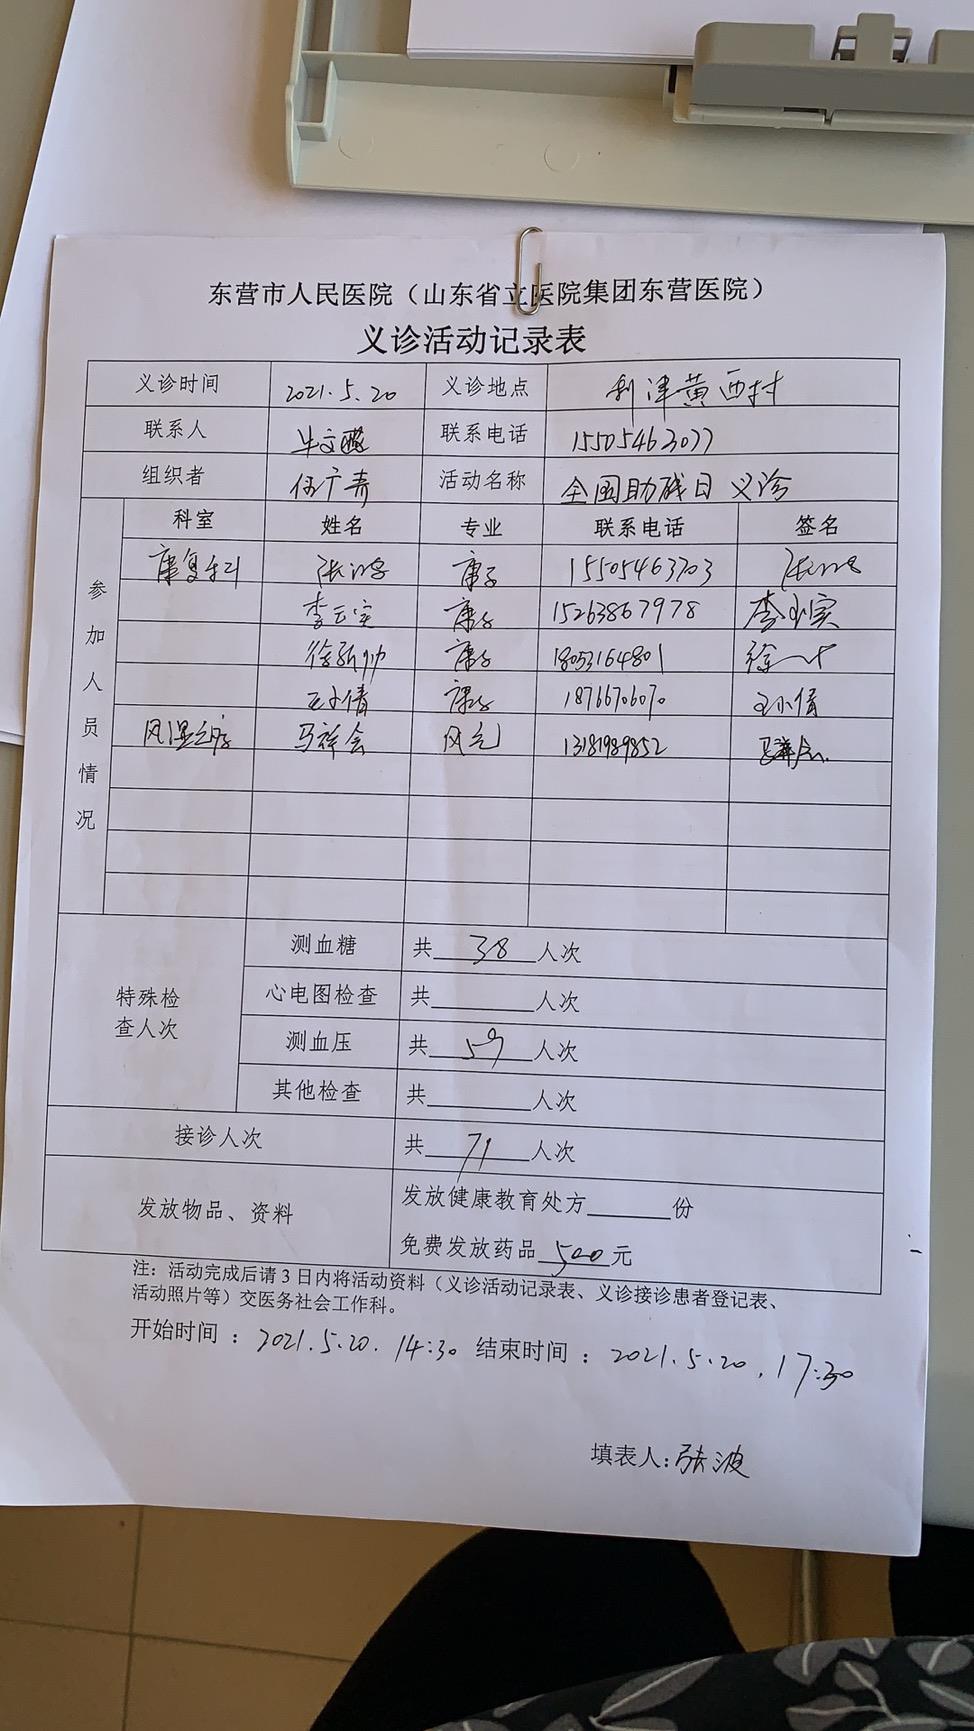 东营市人民医院（山东省立医院集团东营医院）
义诊活动记录表
义诊时间 2021.5.20 义诊地点 利津黄西村
联系人 联系电话 15505463077
组织者 活动名称 全国助残日 义诊
参加人员情况
科室 姓名 专业 联系电话 签名
康复科 15505463703
15263867978
18053164801
王小倩 王小倩
马祥会 13181989852
特殊检查人次
测血糖 共 38 人次
心电图检查 共 人次
测血压 共 59 人次
其他检查 共 人次
接诊人次 共 71 人次
发放物品、资料
发放健康教育处方 份
免费发放药品 500 元
注：活动完成后请3日内将活动资料（义诊活动记录表、义诊接诊患者登记表、
活动照片等）交医务社会工作科。
开始时间 ：2021.5.20. 14:30 结束时间 ：2021.5.20. 17:30
填表人:张波